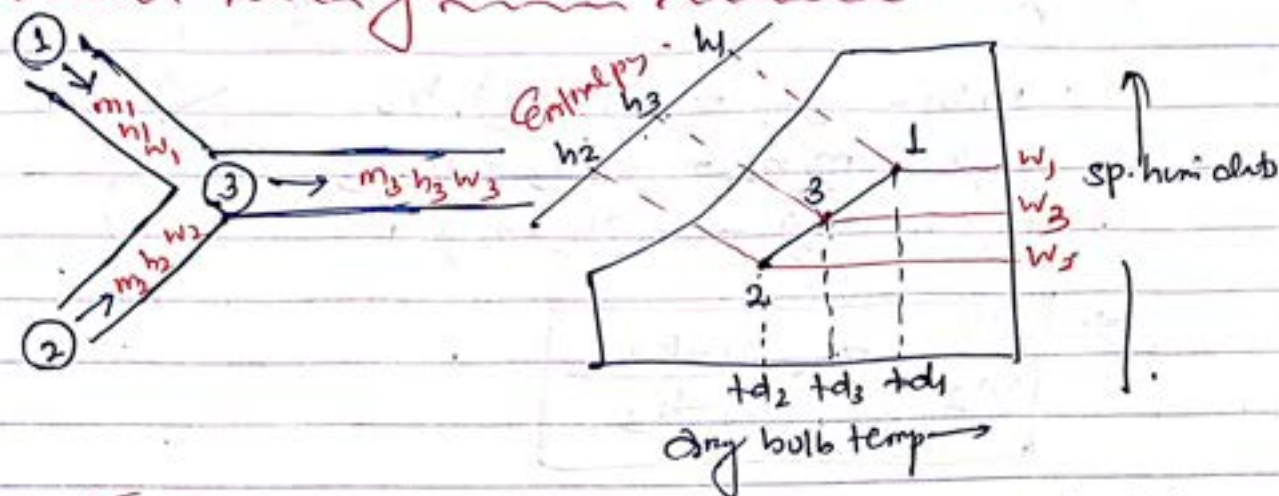 1
m1 h1 w1
3 → m3 h3 w3
m2 h2 w2
2
Enthalpy
h1
h3
h2
1
3
2
w1
w3
sp. humidity
td2 td3 td1
dry bulb temp →